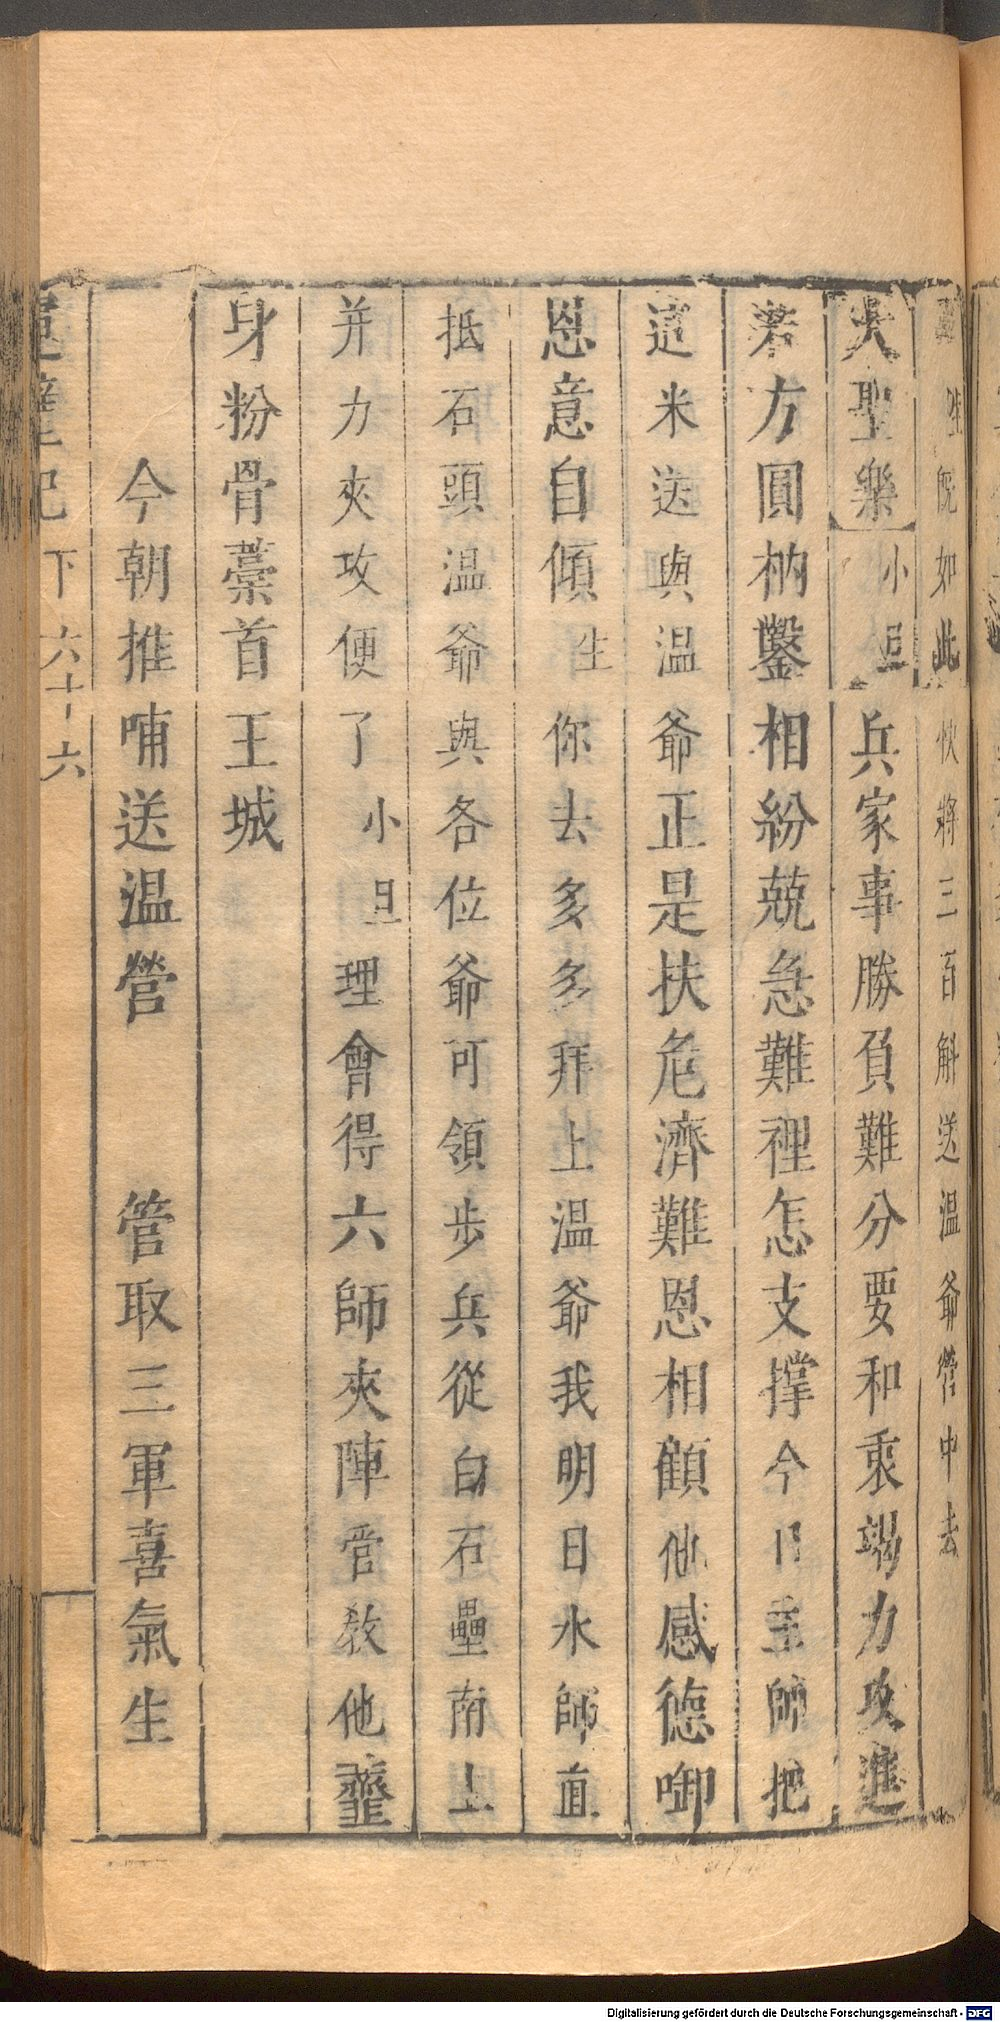 生 旣如此快將三百斛送温爺營中去
大聖樂 小旦 兵家事勝負難分要和衷竭力攻進
若方圓枘鑿相紛兢急難裡怎支撐今日主師把
這米送與温爺正是扶危濟難恩相顧他感德啣
恩意自傾 生 你去多多拜上温爺我明日水師直
抵石頭温爺與各位爺可領步兵從白石壘南上
并力夾攻便了 小旦 理會得六師夾陣管教他虀
身粉骨藁首王城
今朝推哺送温營 管取三軍喜氣生
記 下 六十六
Digitalisierung gefördert durch die Deutsche Forschungsgemeinschaft - DFG